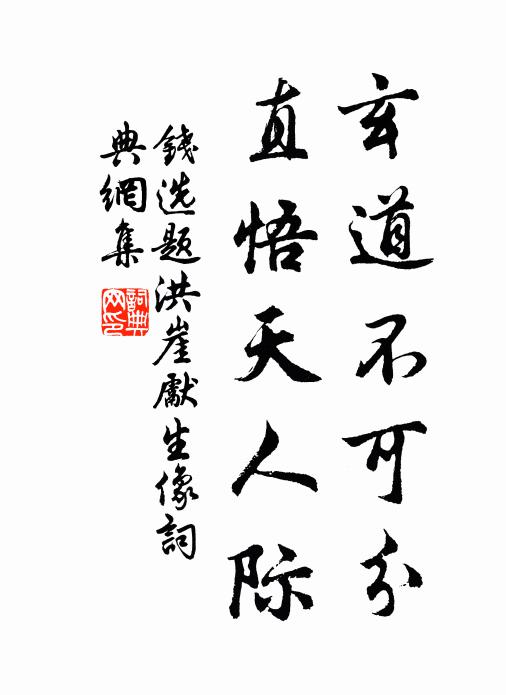 玄道不可分
直悟天人际
錢选题洪崖獻生像詞
典網集
詞典
网印